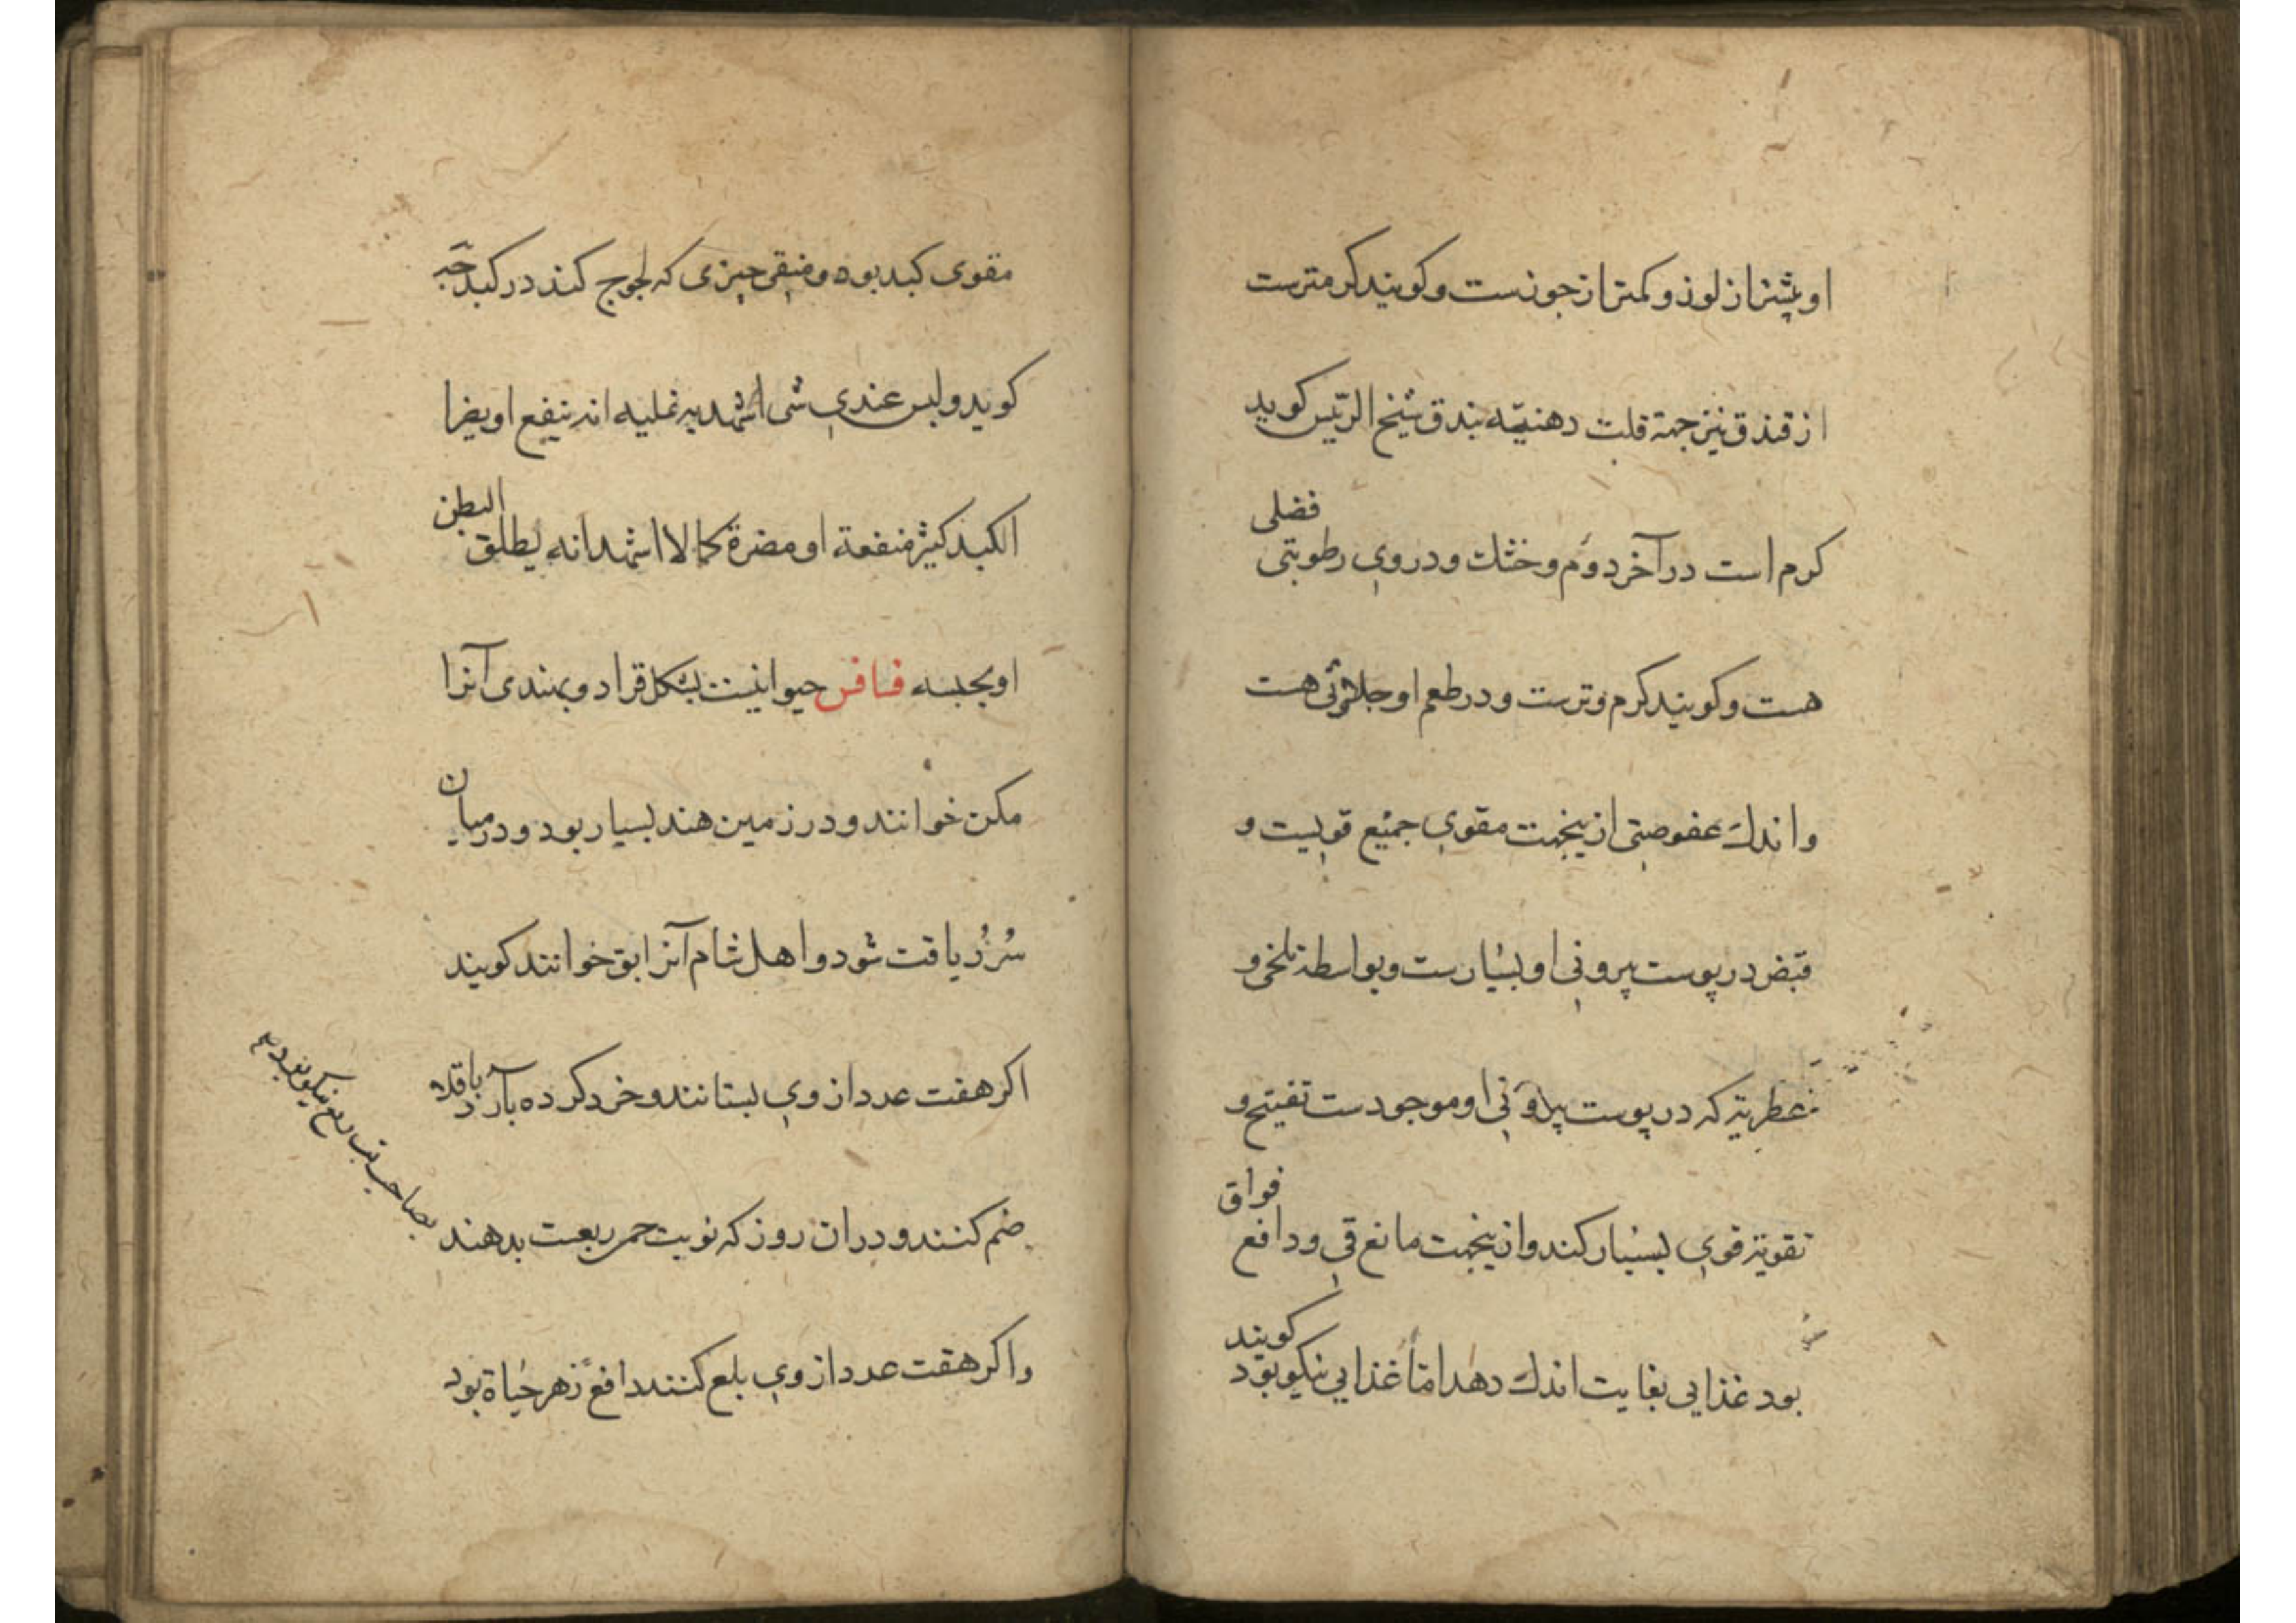 او بیشتر از لوز و کمتر از جوزست و کویند کرمترست
از فندق نیز جهة قلت دهنیّه بندق شیخ الرئیس کوید
کرم است در آخر دوّم و خشك و در وی رطوبتی فضلی
هست و کویند کرم و ترست و در طعم او حلاوتی هست
و اندك عفوصتی ازینجهت مقوی جمیع قویست و
قبض در پوست بیرونی او بسیارست و بواسطهٔ تلخی و
عطریة که در پوست بیرونی او موجودست تفتیح و
تقویة قوی بسیار کند و ازینجهت مانع قی و دافع فواق
بود غذایی بغایت اندك دهد امّا غذایی نیکو بود کویند
مقوی کبد بود و منقی چیزی که لجوج کند در کبد
کوید و لیس عندی شی اشهد به علیه انه ینفع او یضر
الکبد کثیر منفعة او مضرة کما لا اشهد انه یطلق البطن
او یحبسه فسافس حیوانیست بشکل قراد و بهندی آنرا
مکن خوانند و در زمین هند بسیار بود و در میان
سُرُر یافت شود و اهل شام آنرا بق خوانند کویند
اکر هفت عدد از وی بستانند و خرد کرده بآرد باقلا
ضم کنند و در ان روز که نوبت حمی ربعست بدهند
بصاحب تب ربع نیکو بود
و اکر هفت عدد از وی بلع کنند دافع زهر حیاة بود